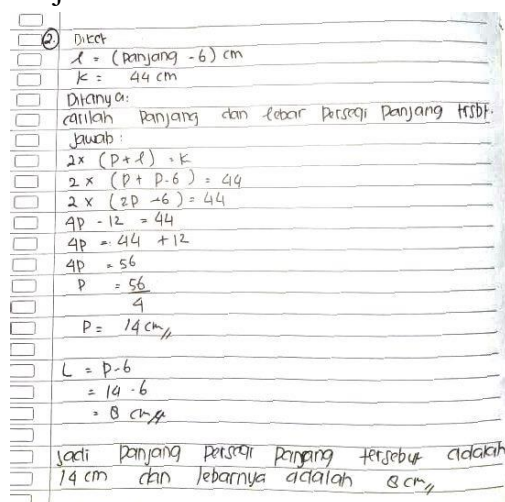 2. Diket
l = (panjang - 6) cm
k = 44 cm
Ditanya:
carilah panjang dan lebar persegi panjang trsbt.
Jawab :
2 x (P + l) = k
2 x (P + P - 6) = 44
2 x (2P - 6) = 44
4P - 12 = 44
4P = 44 + 12
4P = 56
P = 56
4
P = 14 cm //
L = P - 6
= 14 - 6
= 8 cm //
Jadi panjang persegi panjang tersebut adalah
14 cm dan lebarnya adalah 8 cm //